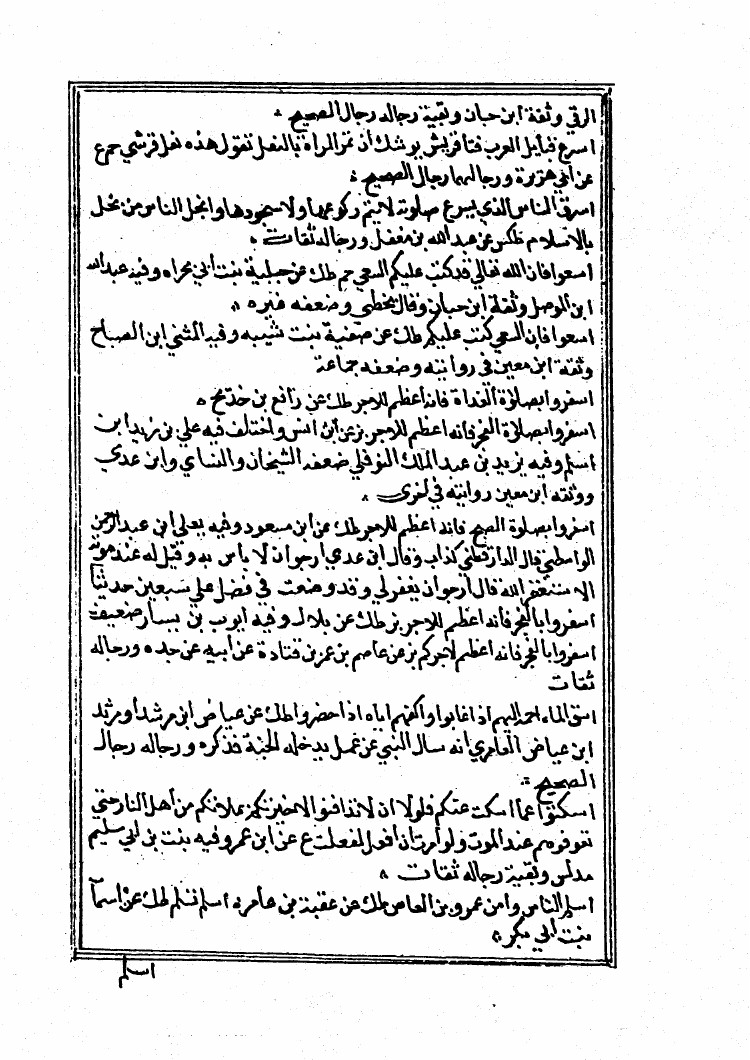 الرقي وثقة ابن حبان وبقية رجاله رجال الصحيح
اسرع قبايل العرب فنا قريش يوشك ان تمر المراة بالنعل فتقول هذه نعل قرشي حم ع
عن ابي هريرة ورجالهما رجال الصحيح
اسرق الناس الذي يسرق صلوته لا يتم ركوعها ولا سجودها وابخل الناس من بخل
بالاسلام طكس عن عبد الله بن مغفل ورجاله ثقات
اسعوا فان الله تعالى قد كتب عليكم السعي حم طك عن حبيبة بنت ابي تجراه وفيه عبد الله
ابن المومل وثقة ابن حبان وقال يخطي وضعفه غيره
اسعوا فان السعي كتب عليكم طك عن صفية بنت شيبه وفيه المثني ابن الصباح
وثقة ابن معين في رواية وضعفه جماعة
اسفروا بصلاة الغداة فانه اعظم للاجر طك عن رافع بن خديج
اسفروا بصلاة الفجر فانه اعظم للاجر بز عن انس واختلف فيه علي بن زيد ابن
اسلم وفيه يزيد بن عبد الملك النوفلي ضعفه الشيخان والنساي وابن عدي
ووثقه ابن معين رواية في اخرى
اسفروا بصلوة الصبح فانه اعظم للاجر طك عن ابن مسعود وفيه يعلي ابن عبد الرحمن
الواسطي قال الدارقطني كذاب وقال ابن عدي ارجو ان لا باس به وقيل له عند موته
الا تستغفر الله قال ارجو ان يغفر لي وقد وضعت في فضل علي سبعين حديثا
اسفروا بالفجر فانه اعظم للاجر بز طك عن بلال وفيه ايوب بن يسار ضعيف
اسفروا بالفجر فانه اعظم لاجركم بز عن عاصم بن عمر بن قتادة عن ابيه عن جده ورجاله
ثقات
اسق الماء احمله اليهم اذا غابوا واكفهم اياه اذا حضروا طك عن عياض ابن مرثد او مرثد
ابن عياض العامري انه سال النبي عن عمل يدخله الجنة فذكره ورجاله رجال
الصحيح
اسكتوا عما اسكت عنكم فلولا ان لا تدافنوا لاخبرتكم بملائكم من أهل النار حتي
تعرفوهم عند الموت ولو امرت ان افعل لفعلت ع عن ابن عمر وفيه ليث بن ابي سليم
مدلس وبقية رجاله ثقات
اسلم الناس وامن عمرو بن العاص طك عن عقبة بن عامر اسلم تسلم طك عن اسمآ
بنت ابي بكر
اسلم